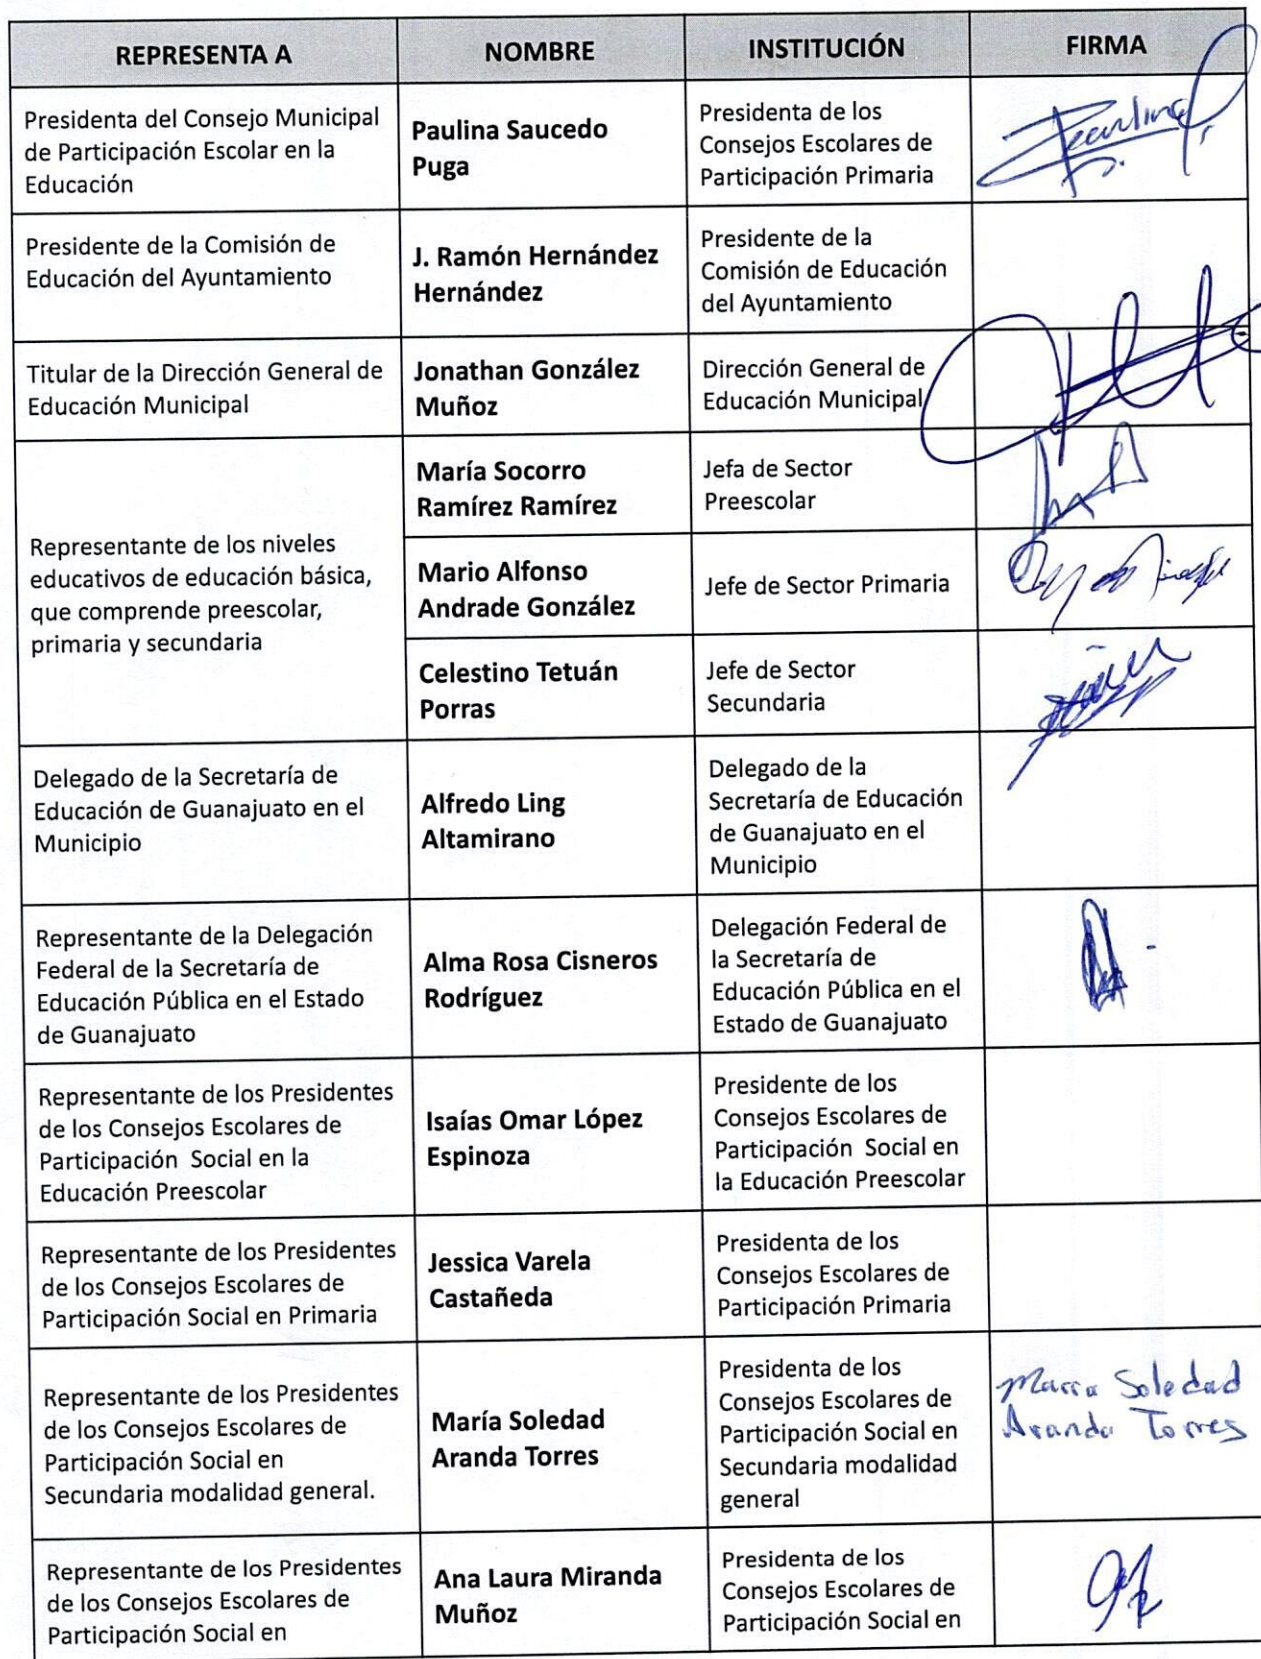 REPRESENTA A
NOMBRE
INSTITUCIÓN
FIRMA
Presidenta del Consejo Municipal
de Participación Escolar en la
Educación
Paulina Saucedo
Puga
Presidenta de los
Consejos Escolares de
Participación Primaria
Presidente de la Comisión de
Educación del Ayuntamiento
J. Ramón Hernández
Hernández
Presidente de la
Comisión de Educación
del Ayuntamiento
Titular de la Dirección General de
Educación Municipal
Jonathan González
Muñoz
Dirección General de
Educación Municipal
Representante de los niveles
educativos de educación básica,
que comprende preescolar,
primaria y secundaria
María Socorro
Ramírez Ramírez
Jefa de Sector
Preescolar
Mario Alfonso
Andrade González
Jefe de Sector Primaria
Celestino Tetuán
Porras
Jefe de Sector
Secundaria
Delegado de la Secretaría de
Educación de Guanajuato en el
Municipio
Alfredo Ling
Altamirano
Delegado de la
Secretaría de Educación
de Guanajuato en el
Municipio
Representante de la Delegación
Federal de la Secretaría de
Educación Pública en el Estado
de Guanajuato
Alma Rosa Cisneros
Rodríguez
Delegación Federal de
la Secretaría de
Educación Pública en el
Estado de Guanajuato
Representante de los Presidentes
de los Consejos Escolares de
Participación Social en la
Educación Preescolar
Isaías Omar López
Espinoza
Presidente de los
Consejos Escolares de
Participación Social en
la Educación Preescolar
Representante de los Presidentes
de los Consejos Escolares de
Participación Social en Primaria
Jessica Varela
Castañeda
Presidenta de los
Consejos Escolares de
Participación Primaria
Representante de los Presidentes
de los Consejos Escolares de
Participación Social en
Secundaria modalidad general.
María Soledad
Aranda Torres
Presidenta de los
Consejos Escolares de
Participación Social en
Secundaria modalidad
general
Maria Soledad
Aranda Torres
Representante de los Presidentes
de los Consejos Escolares de
Participación Social en
Ana Laura Miranda
Muñoz
Presidenta de los
Consejos Escolares de
Participación Social en